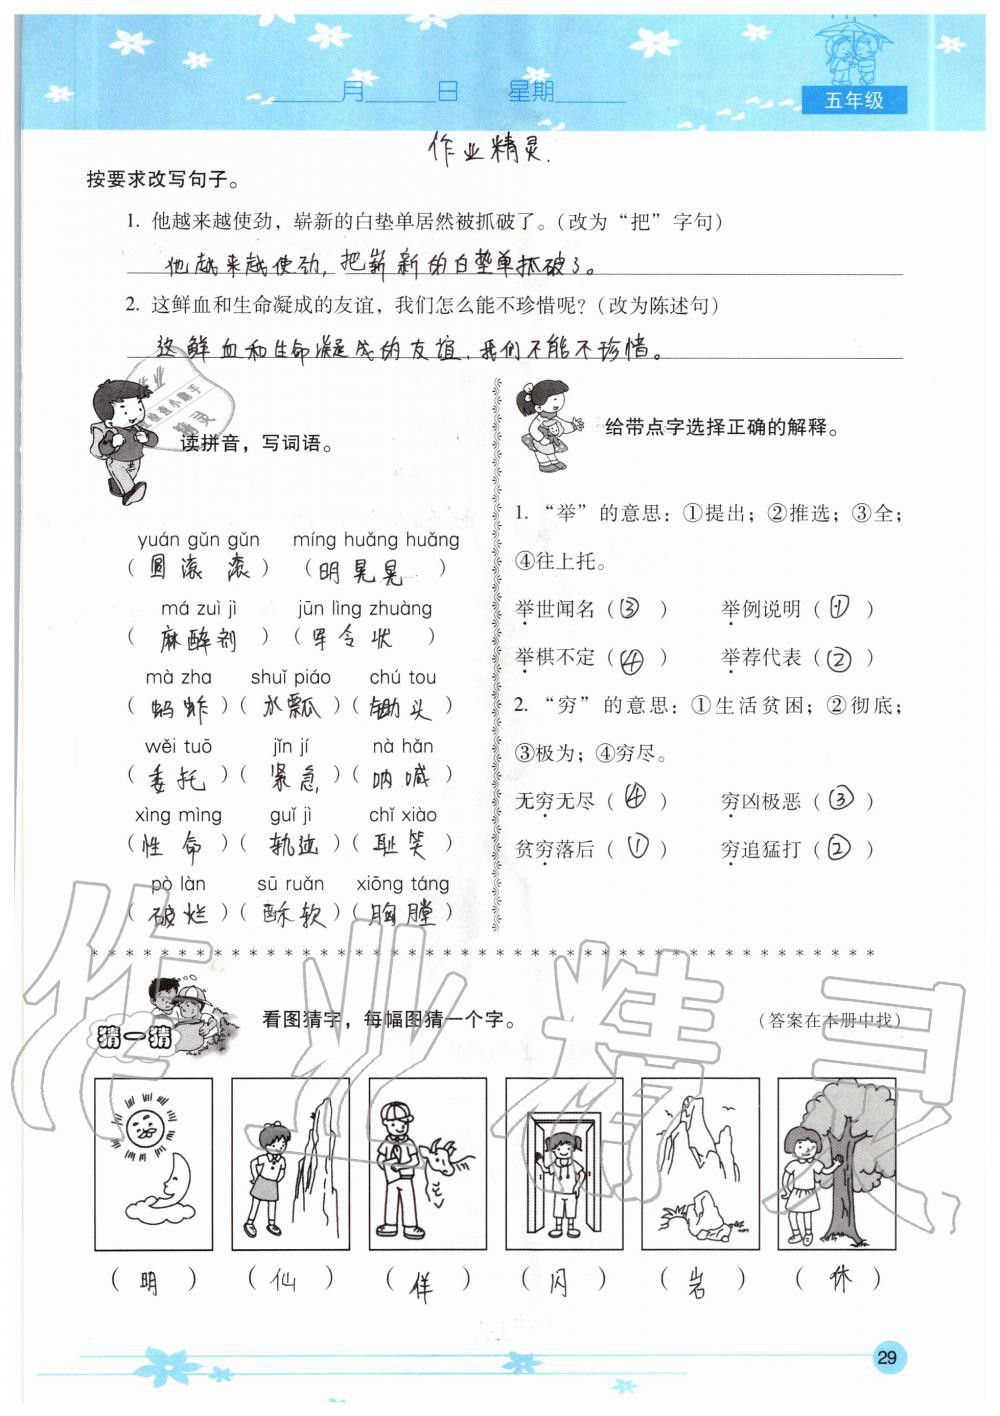 月 日 星期
五年级
作业精灵.
按要求改写句子。
1. 他越来越使劲，崭新的白垫单居然被抓破了。（改为“把”字句）
他越来越使劲，把崭新的白垫单抓破了。
2. 这鲜血和生命凝成的友谊，我们怎么能不珍惜呢？（改为陈述句）
这鲜血和生命凝成的友谊，我们不能不珍惜。
作业
检查小助手
精灵
读拼音，写词语。
yuán gǔn gǔn míng huǎng huǎng
（圆滚滚）（明晃晃）
má zuì jì jūn lìng zhuàng
（麻醉剂）（军令状）
mà zha shuǐ piáo chú tou
（蚂蚱）（水瓢）（锄头）
wěi tuō jǐn jí nà hǎn
（委托）（紧急）（呐喊）
xìng mìng guǐ jì chǐ xiào
（性命）（轨迹）（耻笑）
pò làn sū ruǎn xiōng táng
（破烂）（酥软）（胸膛）
给带点字选择正确的解释。
1. “举”的意思：①提出；②推选；③全；
④往上托。
举世闻名（③） 举例说明（①）
举棋不定（④） 举荐代表（②）
2. “穷”的意思：①生活贫困；②彻底；
③极为；④穷尽。
无穷无尽（④） 穷凶极恶（③）
贫穷落后（①） 穷追猛打（②）
* * * * * * * * * * * * * * * * * * * * * * * * * * * * * * * * * * * * * * * * * * * *
作业精灵
猜一猜
看图猜字，每幅图猜一个字。
（答案在本册中找）
（明）（仙）（佯）（闪）（岩）（休）
29